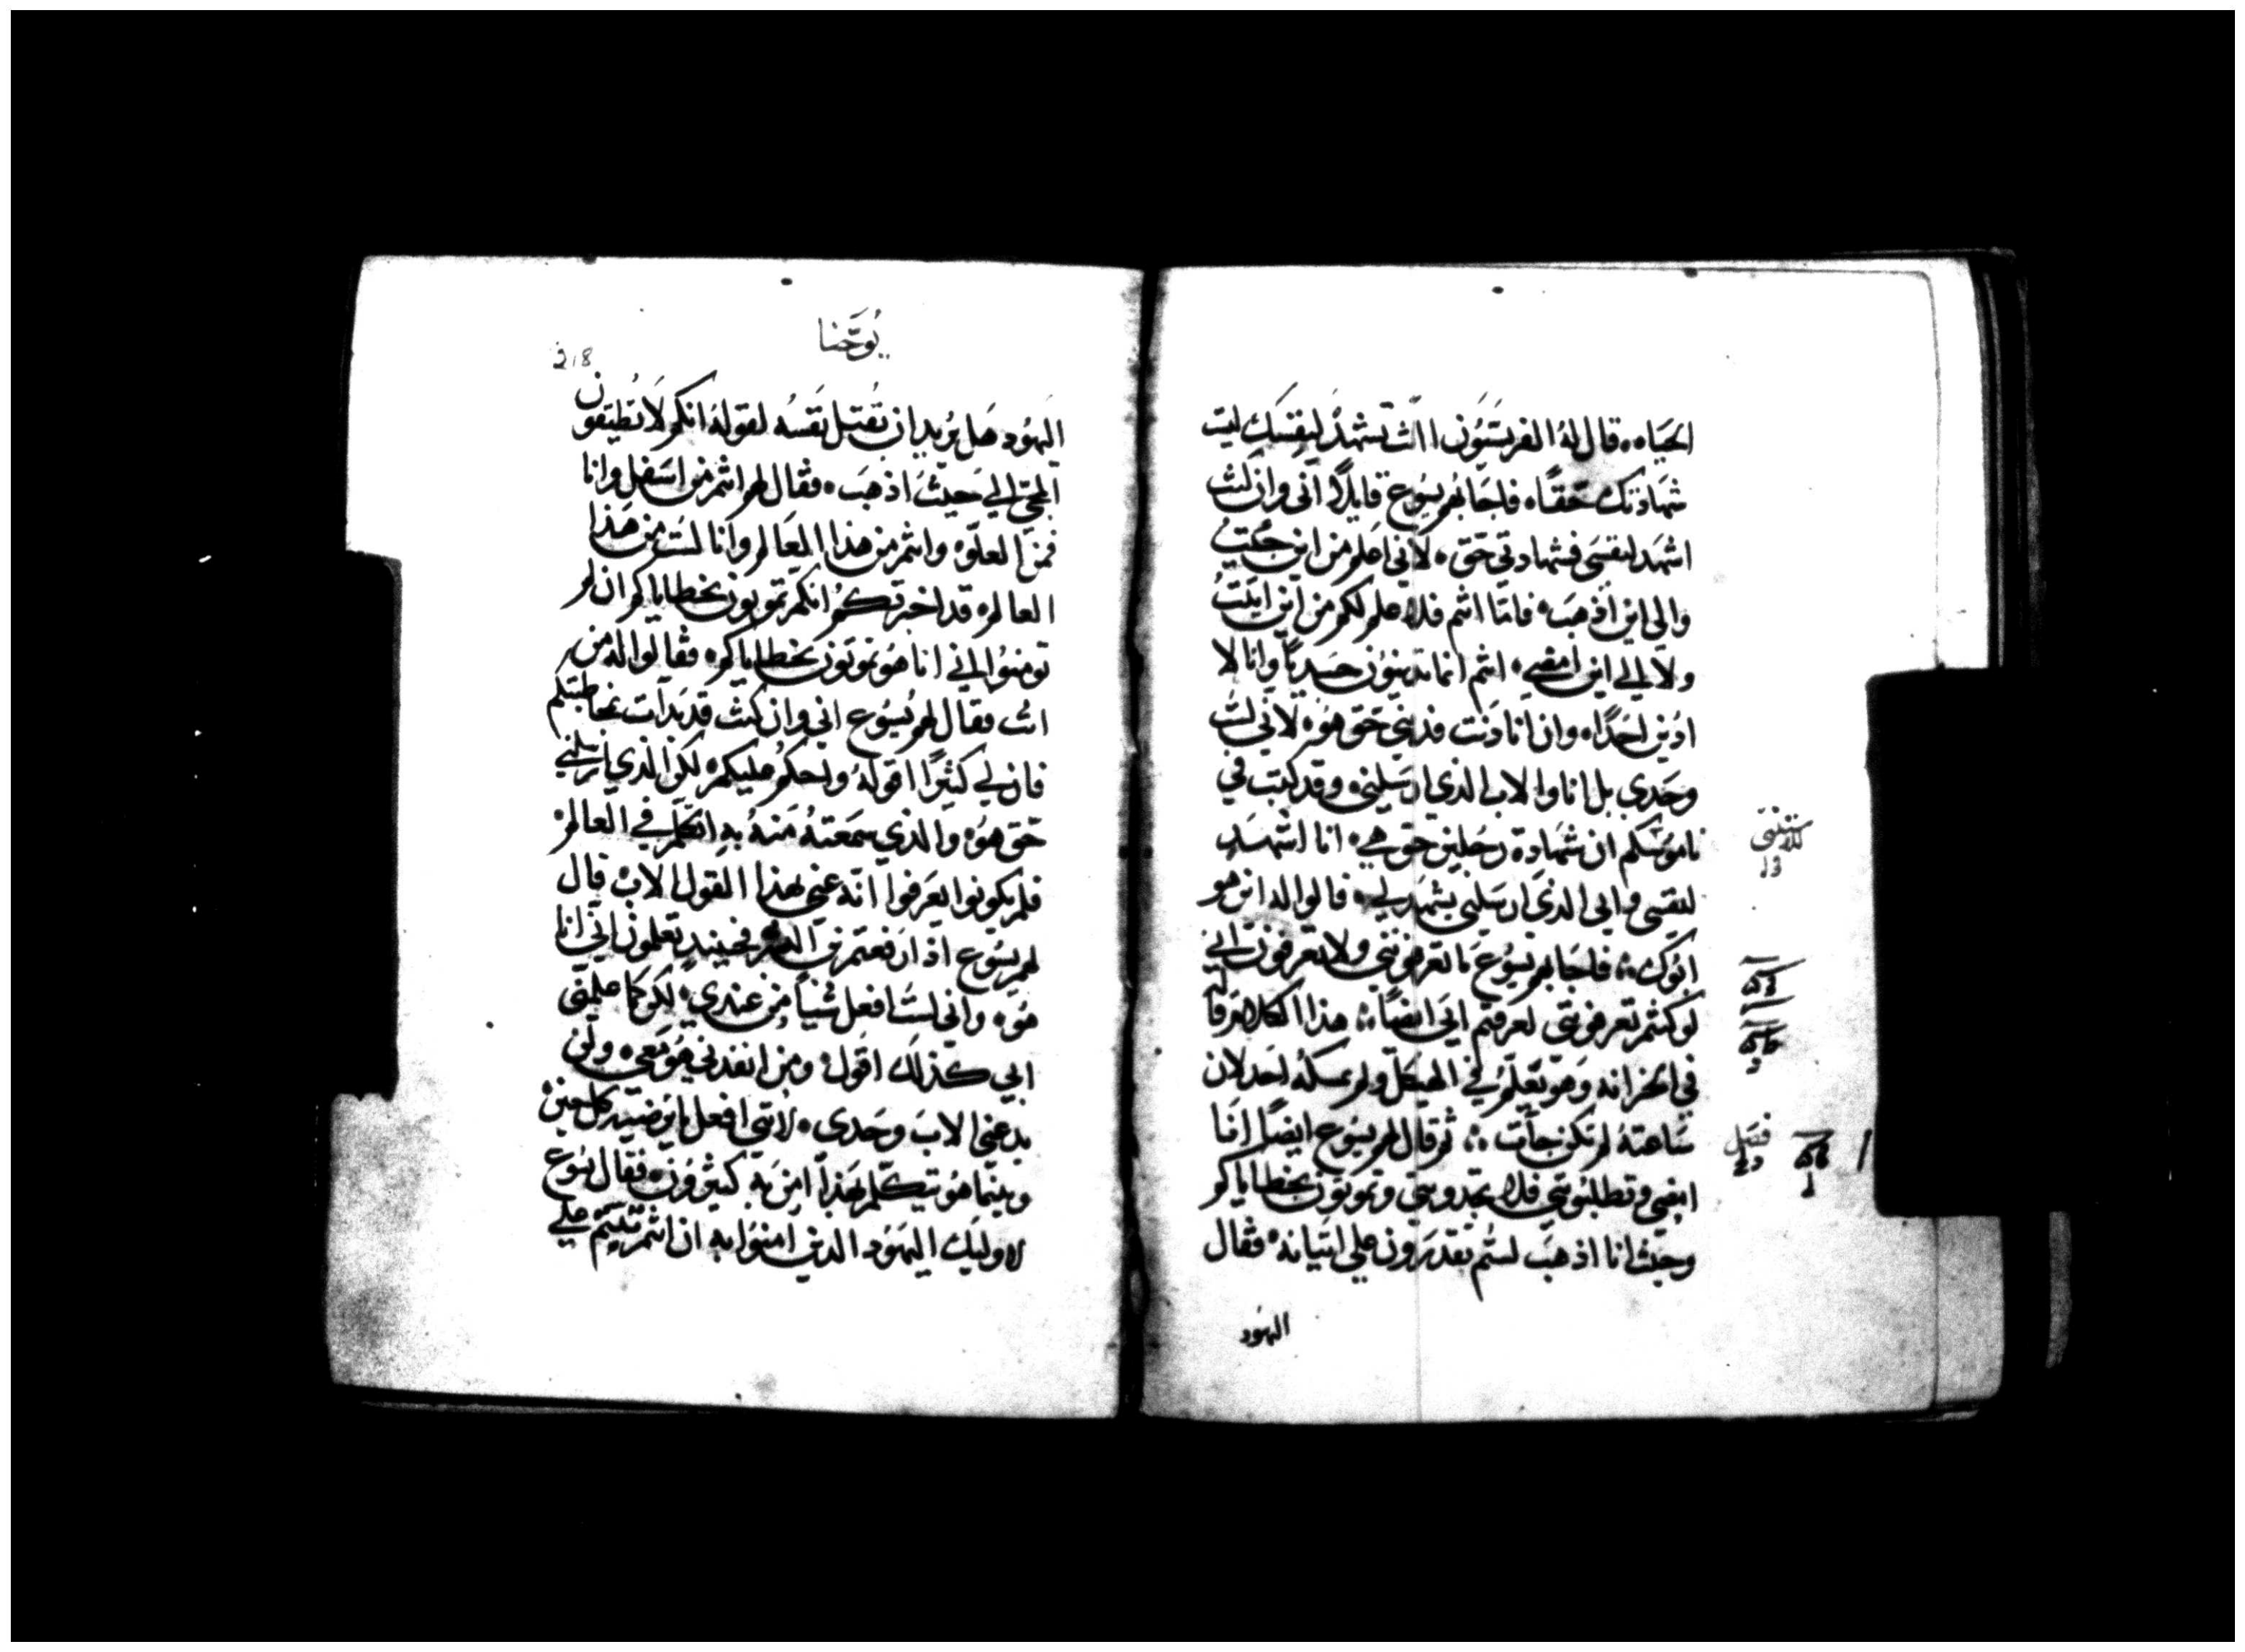 الحياه، قال له الفريسيون اانت تشهد لنفسك ليست
شهادتك حقاه فاجابهم يسوع قايلاً اني وان كنت
اشهد لنفسي فشهادتي حق، لاني اعلم من اين جيت
والي اين اذهب، فاما انتم فلا علم لكم من اين اتيت
ولا الي اين امضي، انتم انما تدينون جسدياً وانا لا
ادين احداً، وان انا دنت فديني حق هو، لاني لست
وحدي بل انا والاب الذي ارسلني، وقد كتب في
ناموسكم ان شهادة رجلين حق هي، انا اشهد
لنفسي وابي الذي ارسلني يشهد لي، قالوا له اين هو
ابوك، فاجابهم يسوع ما تعرفونني ولا تعرفون ابي
لو كنتم تعرفونني لعرفتم ابي ايضاً، هذا الكلام قاله
في الخزانه وهو يعلم في الهيكل ولم يمسكه احد لان
ساعته لم تكن جأت، ثم قال لهم يسوع ايضاً انا
امضي وتطلبونني فلا تجدونني وتموتون بخطاياكم
وحيث انا اذهب لستم تقدرون علي اتيانه، فقال
اليهود
فصل
يوحنا
218
اليهود هل يريد ان يقتل نفسه لقوله انكم لا تطيقون
المجي الي حيث اذهب، فقال لهم انتم من اسفل وانا
فمن العلو، وانتم من هذا العالم وانا لست من هذا
العالم، قد اخبرتكم انكم تموتون بخطاياكم ان لم
تومنوا اني انا هو تموتون بخطاياكم، فقالوا له من
انت فقال لهم يسوع اني وان كنت قد بدأت بمخاطبتكم
فان لي كثيراً اقوله واحكم عليكم، لكن الذي ارسلني
حق هو، والذي سمعته منه به اتكلم في العالم،
فلم يكونوا يعرفوا انه عني بهذا القول الاب، قال
لهم يسوع اذا رفعتم ابن البشر فحينيذ تعلمون اني انا
هو، واني لست افعل شياً من عندي، لكن كما علمني
ابي كذلك اقول، ومن انفذني هو معي، ولن
يدعني الاب وحدي، لانني افعل ما يرضيه كل حين،
وبينما هو يتكلم بهذا امن به كثيرون، فقال يسوع
لاوليك اليهود الذين امنوا به ان انتم ثبتم علي